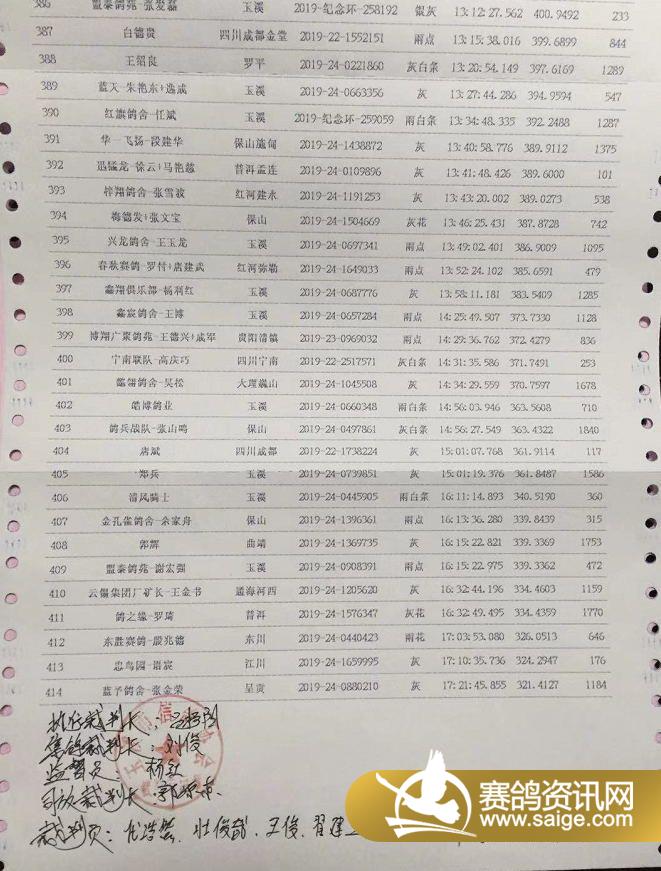 386 盟泰鸽苑-张发磊 玉溪 2019-纪念环-258192 银灰 13:12:27.562 400.9492 233
387 白德贵 四川成都金堂 2019-22-1552151 雨点 13:15:38.016 399.6899 844
388 王绍良 罗平 2019-24-0221860 灰白条 13:20:54.149 397.6169 1289
389 蓝天-朱艳东+逸成 玉溪 2019-24-0663356 灰 13:27:44.286 394.9594 547
390 红旗鸽舍-任斌 玉溪 2019-纪念环-259059 雨白条 13:34:48.335 392.2488 1287
391 华一飞扬-段建华 保山施甸 2019-24-1438872 灰 13:40:58.776 389.9112 1375
392 迅猛龙-徐云+马艳越 普洱孟连 2019-24-0109896 灰 13:41:48.426 389.6000 101
393 梓翔鸽舍-张雪波 红河建水 2019-24-1191253 灰 13:43:20.002 389.0273 538
394 梅德发+张文宝 保山 2019-24-1504669 灰花 13:46:25.431 387.8728 742
395 兴龙鸽舍-王玉龙 玉溪 2019-24-0697341 雨点 13:49:02.401 386.9009 1095
396 春秋赛鸽-罗付+唐建武 红河弥勒 2019-24-1649033 雨点 13:52:24.102 385.6591 479
397 鑫翔俱乐部-杨利红 玉溪 2019-24-0687776 灰 13:58:11.181 383.5409 1285
398 鑫宸鸽舍-王博 玉溪 2019-24-0657284 雨点 14:25:49.507 373.7330 1128
399 博翔广聚鸽苑-王德兴+成军 贵阳清镇 2019-23-0969032 雨点 14:29:36.762 372.4279 836
400 宁南联队-高庆巧 四川宁南 2019-22-2517571 灰白条 14:31:35.586 371.7491 253
401 鸽舍-吴松 大理巍山 2019-24-1045508 灰 14:34:29.559 370.7597 1678
402 皓博鸽业 玉溪 2019-24-0660348 雨白条 14:56:03.946 363.5608 710
403 鸽兵战队-张山鸣 保山 2019-24-0497861 灰白条 14:56:27.549 363.4322 1840
404 唐斌 四川成都 2019-22-1738224 灰 15:01:07.768 361.9114 117
405 郑兵 玉溪 2019-24-0739851 灰 15:01:19.376 361.8487 1586
406 清风骑士 玉溪 2019-24-0445905 雨白条 16:11:14.893 340.5190 360
407 金孔雀鸽舍-余家舟 保山 2019-24-1396361 雨点 16:13:36.280 339.8439 315
408 郭辉 曲靖 2019-24-1369735 灰 16:15:22.821 339.3369 1753
409 盟泰鸽苑-谢宏强 玉溪 2019-24-0908391 雨点 16:15:22.975 339.3362 472
410 云锡集团厂矿长-王金书 通海河西 2019-24-1205620 灰 16:32:44.196 334.4603 1159
411 鸽之缘-罗琦 普洱 2019-24-1576347 灰花 16:32:49.495 334.4359 1770
412 东胜赛鸽-殷兆德 东川 2019-24-0440423 雨花 17:03:53.080 326.0513 646
413 忠鸟园-语宸 江川 2019-24-1659995 灰 17:10:35.736 324.2947 176
414 蓝予鸽舍-张金荣 呈贡 2019-24-0880210 灰 17:21:45.855 321.4127 1184
执行裁判长:
集鸽裁判长:刘俊
监督员:杨红
司放裁判长:
裁判员: 杜俊武、王俊、
赛鸽资讯网
www.saige.com